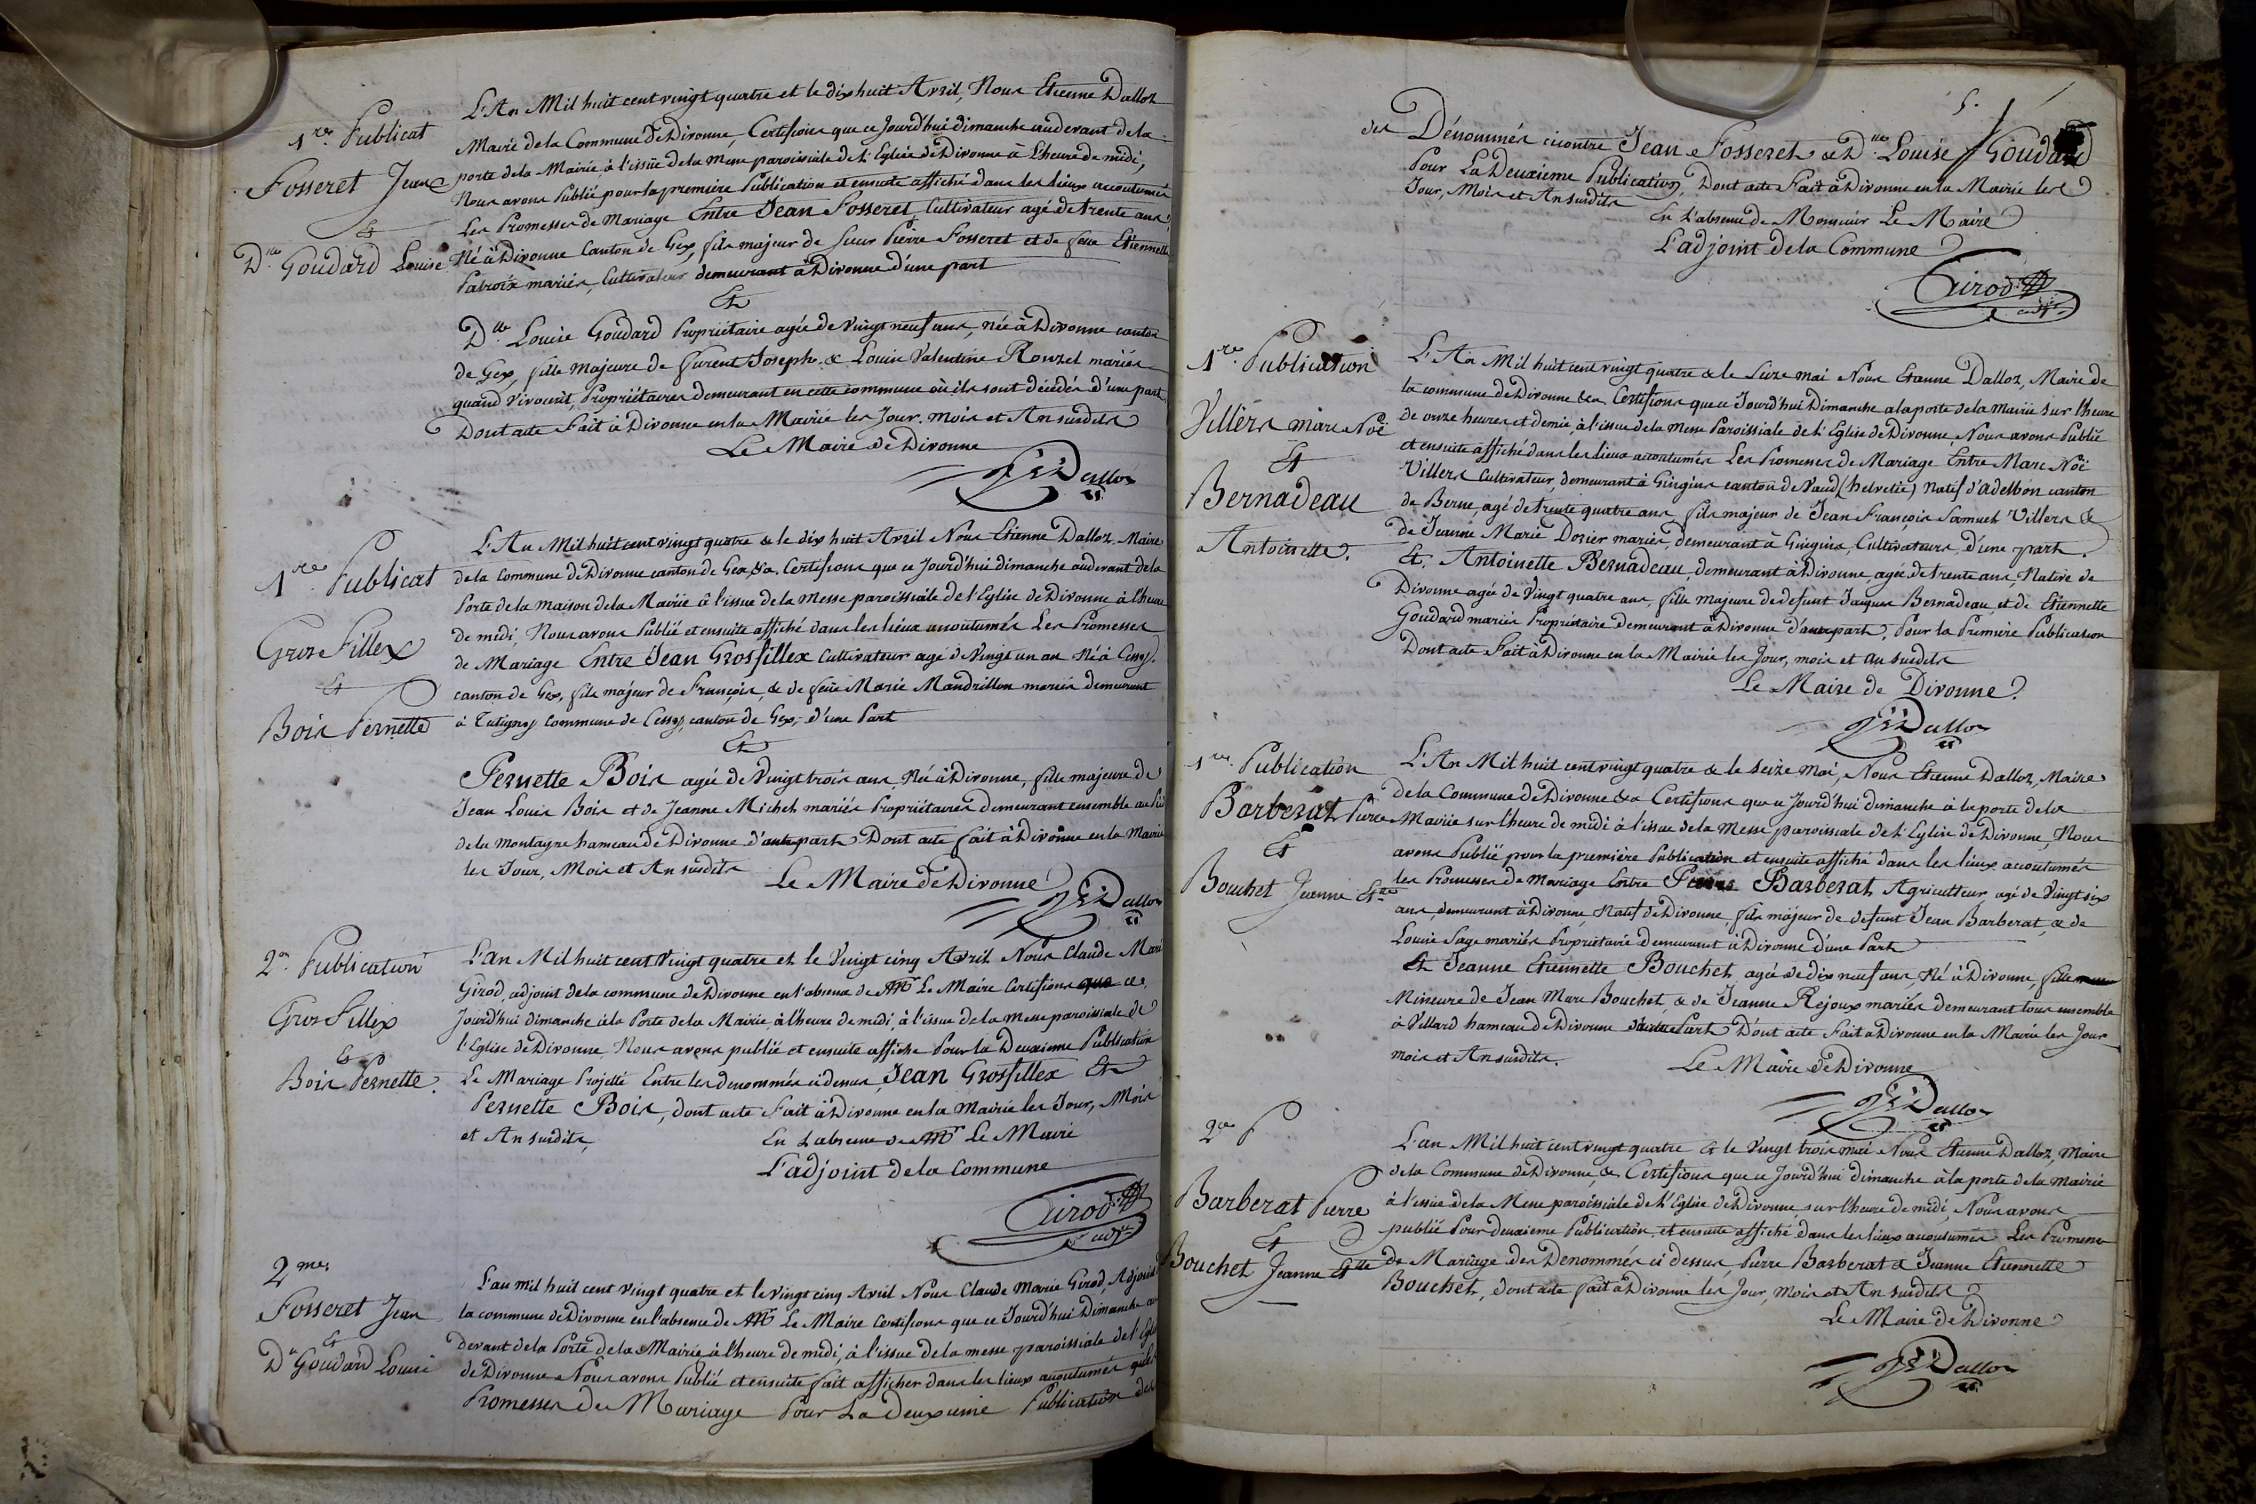 1.re Publicat
Fosseret Jean
Et
D.lle Goudard Louise
L'An Mil huit cent vingt quatre et le dix huit Avril, Nous Etienne Dalloz
Maire de la Commune de Divonne, Certifions que ce Jourd'hui dimanche audevant de la
porte de la Mairie à l'issue de la Messe paroissiale de l'Eglise de Divonne à l'heure de midi,
Nous avons Publié pour la premiere Publication et ensuite affiché dans les lieux accoutumés
Les Promesses de Mariage Entre Jean Fosseret, Cultivateur agé de trente ans,
Né à Divonne Canton de Gex, fils majeur de Pierre Fosseret et de feue Etiennette
mariés, Cultivateur demeurant à Divonne d'une part
Et
D.lle Louise Goudard Propriétaire agée de vingt neuf ans, née à Divonne canton
de Gex, fille majeure de furent Joseph & Louise Valentine Rouzel mariés
quand vivoient, Propriétaires demeurant en cette commune où ils sont décédés d'une part
Dont acte Fait à Divonne en la Mairie les Jour, mois et An susdits
Le Maire de Divonne
Dalloz
1.re Publicat
Gros Fillex
Et
Bois Pernette
L'An Mil huit cent vingt quatre & le dix huit Avril Nous Etienne Dalloz Maire
de la Commune de Divonne canton de Gex &a. Certifions que ce Jourd'hui dimanche audevant de la
Porte de la maison de la Mairie à l'issue de la Messe paroissiale de l'Eglise de Divonne à l'heure
de midi, Nous avons Publié et ensuite affiché dans les lieux accoutumés Les Promesses
de Mariage Entre Jean Grosfillex Cultivateur agé de Vingt un an Né à Cessy,
canton de Gex, fils majeur de François, & de feue Marie Mandrillon mariés demeurant
à Tutigny commune de Cessy, canton de Gex, d'une Part
Et
Pernette Bois agée de Vingt trois ans, Né à Divonne, fille majeure de
Jean Louis Bois et de Jeanne Michet mariés Propriétaires demeurant ensemble au Pié
de la Montagne hameau de Divonne d'autre part Dont acte fait à Divonne en la Mairie
les Jour, Mois et An susdits
Le Maire de Divonne
Dalloz
2.e Publication
Gros Fillex
Et
Bois Pernette.
L'an Mil huit cent Vingt quatre et le Vingt cinq Avril Nous Claude Marie
Girod, adjoint de la commune de Divonne en l'absence de Mr Le Maire Certifions que ce
Jourd'hui dimanche à la Porte de la Mairie, à l'heure de midi, à l'issue de la messe paroissiale de
l'Eglise de Divonne Nous avons publié et ensuite affiché Pour la Deuxieme Publication
Le Mariage Projetté Entre les denommés ci dessus, Jean Grosfillex Et
Pernette Bois, dont acte Fait à Divonne en la Mairie les Jour, Mois
et An susdits,
En L'absence de Mr Le Maire
L'adjoint de la Commune
Girod
adjt
2.mes
Fosseret Jean
Et
D.lle Goudard Louise
L'an mil huit cent vingt quatre et le vingt cinq Avril Nous Claude Marie Girod, Adjoint
la commune de Divonne en l'absence de Mr Le Maire Certifions que ce Jourd'hui Dimanche au
devant de la Porte de la Mairie à l'heure de midi, à l'issue de la messe paroissiale de l'Eglise
de Divonne Nous avons Publié et ensuite fait afficher dans les lieux accoutumés
Promesses de Mariage Pour La Deuxieme Publication des
5.
des Dénommés cicontre Jean Fosseret & D.lle Louise Goudard
Pour La Deuxieme Publication, Dont acte Fait à Divonne en la Mairie les
Jour, Mois et An susdits
En L'absence de Monsieur Le Maire
L'adjoint de la Commune
Girod
adjt
1.re Publication
Villers Marc Noë
Et
Bernadeau
Antoinette.
L'An Mil huit cent vingt quatre & le Seize mai Nous Etienne Dalloz, Maire de
la commune de Divonne &a Certifions que ce Jourd'hui Dimanche à la porte de la Mairie sur l'heure
de onze heures et demie, à l'issue de la Messe Paroissiale de l'Eglise de Divonne, Nous avons Publié
et ensuite affiché dans les lieux accoutumés Les Promesses de Mariage Entre Marc Noë
Villers Cultivateur, demeurant à Gingins canton de Vaud (helvetie) Natif d'adelbon canton
de Berne, agé de trente quatre ans, fils majeur de Jean François Samuel Villers &
de Jeanne Marie Dozier mariés, demeurant à Gingins, Cultivateurs, d'une part.
Et, Antoinette Bernadeau, demeurant à Divonne, agée de trente ans, Native de
Divonne agée de Vingt quatre ans, fille majeure de defunt Jaques Bernadeau, et de Etiennette
Goudard mariés Propriétaire demeurant à Divonne d'autre part, Pour la Premiere Publication
Dont acte Fait à Divonne en la Mairie les Jour, mois et an susdits
Le Maire de Divonne.
Dalloz
1.re Publication
Barberat Pierre
Et
Bouchet Jeanne Et.tte
L'An Mil huit cent vingt quatre & le Seize Mai, Nous Etienne Dalloz, Maire
de la Commune de Divonne &a Certifions que ce Jourd'hui dimanche à la porte de la
Mairie sur l'heure de midi à l'issue de la Messe paroissiale de l'Eglise de Divonne, Nous
avons Publié pour la première Publication et ensuite affiché dans les lieux accoutumés
les Promesses de Mariage Entre Pierre Barberat Agriculteur agé de Vingt six
ans, demeurant à Divonne, Natif de Divonne, fils majeur de defunt Jean Barberat, & de
Louise Sage mariés Propriétaire demeurant à Divonne d'une Part
Et Jeanne Etiennette Bouchet, agée de dix neuf ans, Né à Divonne, fille
Mineure de Jean Marc Bouchet, & de Jeanne Rejoux mariés demeurant tous ensemble
à Villard hameau de Divonne d'autre Part Dont acte Fait à Divonne en la Mairie les Jour
mois et An susdits.
Le Maire de Divonne
Dalloz
2.e P
Barberat Pierre
Et
Bouchet Jeanne Et.tte
L'an Mil huit cent vingt quatre & le Vingt trois mai Nous Etienne Dalloz, Maire
de la Commune de Divonne, &a Certifions que ce Jourd'hui dimanche à la porte de la Mairie
à l'issue de la Messe paroissiale de l'Eglise de Divonne, sur l'heure de midi, Nous avons
publié Pour deuxieme Publication, et ensuite affiché dans les lieux accoutumés Les Promesses
de Mariage des Denommés ci dessus, Pierre Barberat & Jeanne Etiennette
Bouchet, dont acte fait à Divonne les Jour, Mois et An susdits
Le Maire de Divonne
Dalloz